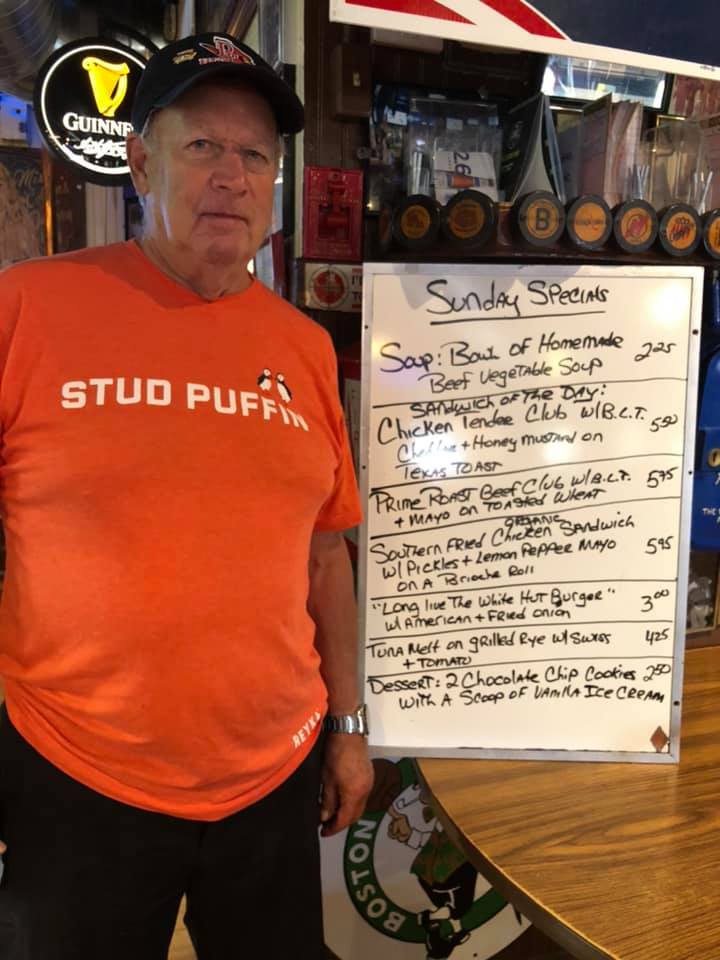 GUINNE
STUD PUFFIN
REYK
26
B
Sunday Specials
Soup: Bowl of Homemade 2.25
Beef Vegetable Soup
Sandwich of the Day:
Chicken Tender Club w/B.L.T. 5.50
+ Honey mustard on
Texas Toast
Prime Roast Beef Club w/B.L.T. 5.75
+ Mayo on Toasted Wheat
organic
Southern Fried Chicken Sandwich
w/ Pickles + Lemon Pepper Mayo 5.95
on A Brioche Roll
"Long live The White Hut Burger" 3.00
w/ American + Fried onion
Tuna Melt on grilled Rye w/ Swiss 4.25
+ Tomato
Dessert: 2 Chocolate Chip Cookies 2.50
with A Scoop of Vanilla Ice Cream
BOSTON